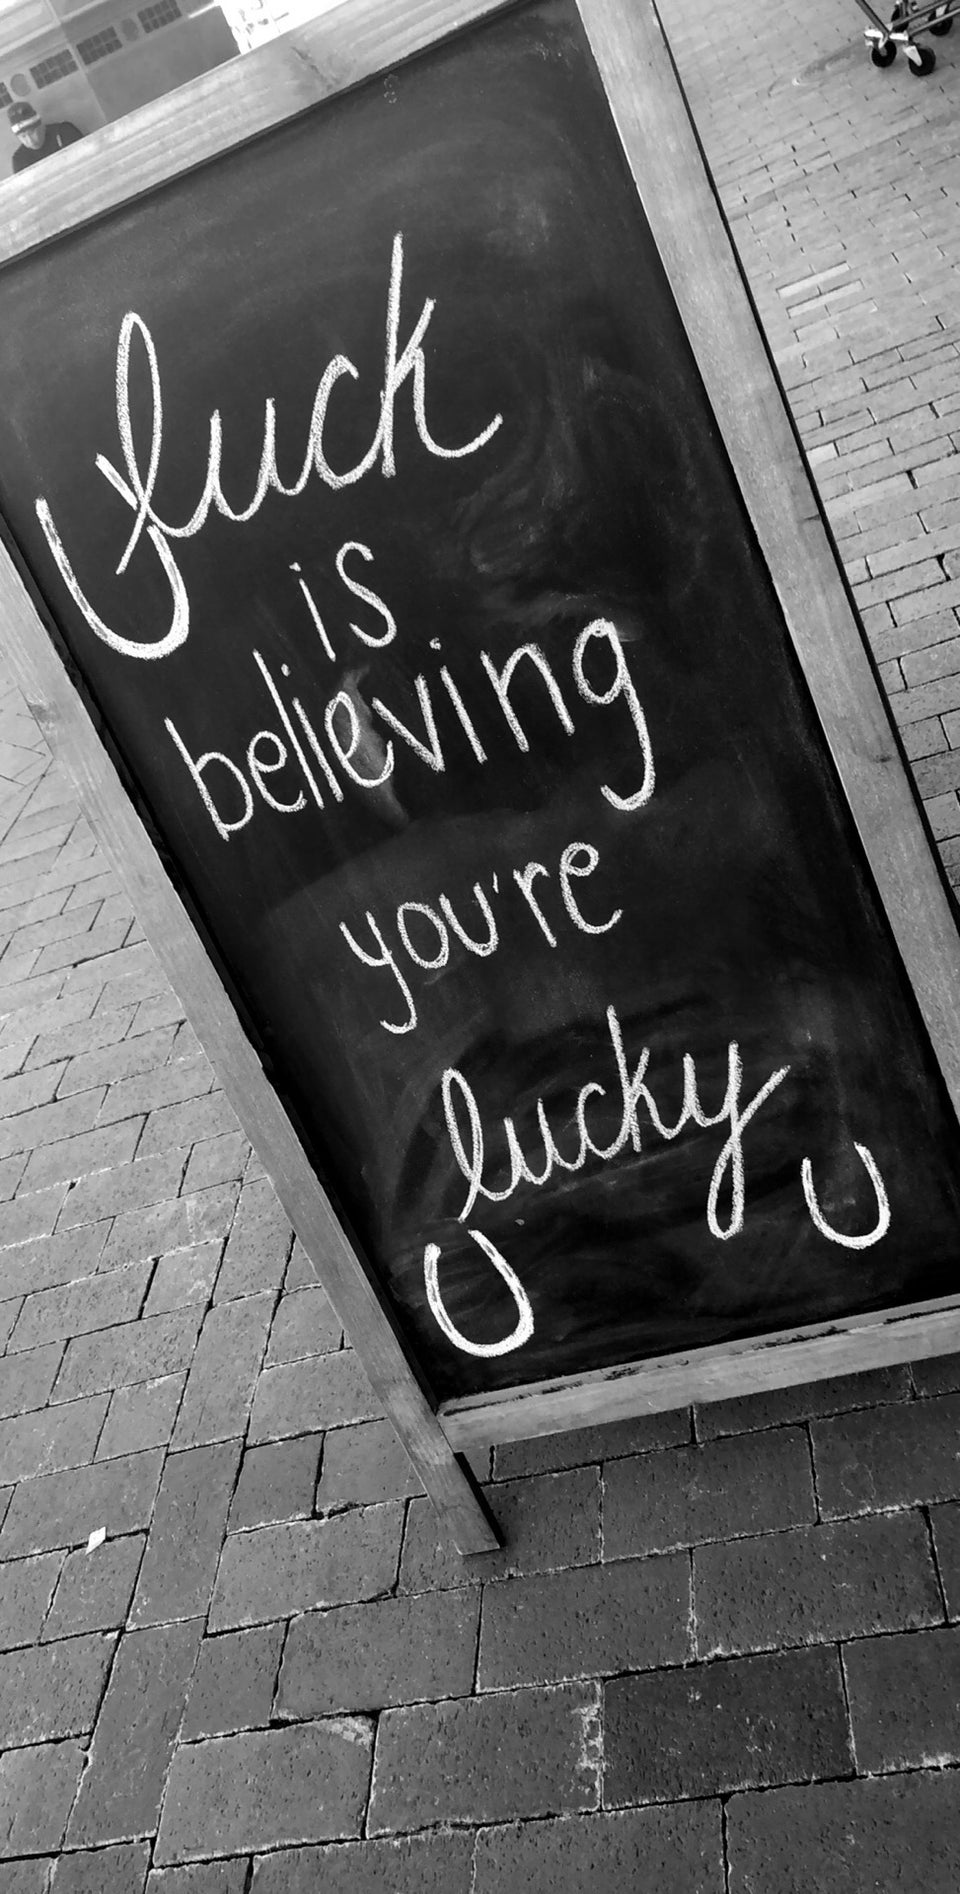 luck
is
believing
you're
lucky